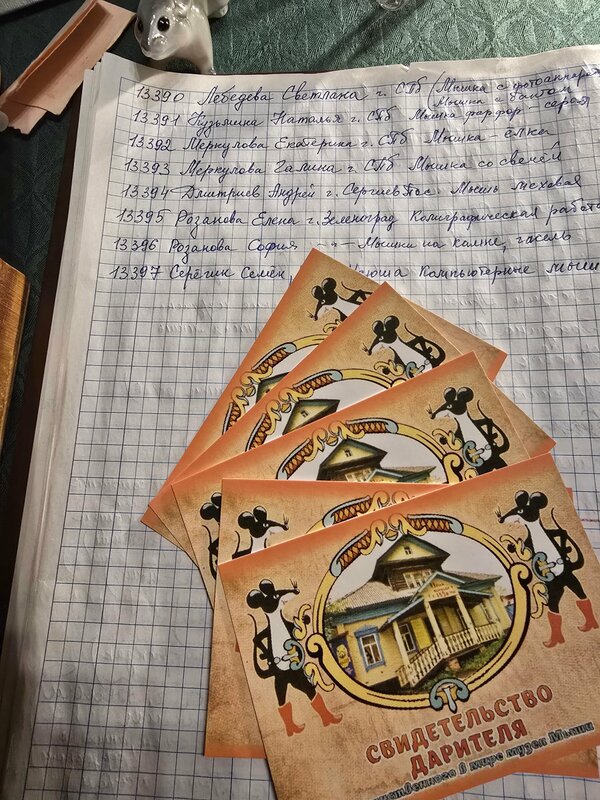 13390 Лебедева Светлана г. СПб (Мышка с фотоаппарат
Мышка с бантом
13391 Кузьмина Наталья г. СПб Мышка фарфор серая
13392 Меркулова Екатерина г. СПб Мышка - ёлка
13393 Меркулова Галина г. СПб Мышка со свечей
13394 Дмитриев Андрей г. Сергиев Пос. Мышь меховая
13395 Розанова Елена г. Зеленоград Калиграфическая работа
13396 Розанова София -"- Мышки на камне, гжель
13397 Серёгин Семён, Ксюша Компьютерные мыши
СВИДЕТЕЛЬСТВО
ДАРИТЕЛЯ
нственного в мире музея Мыши